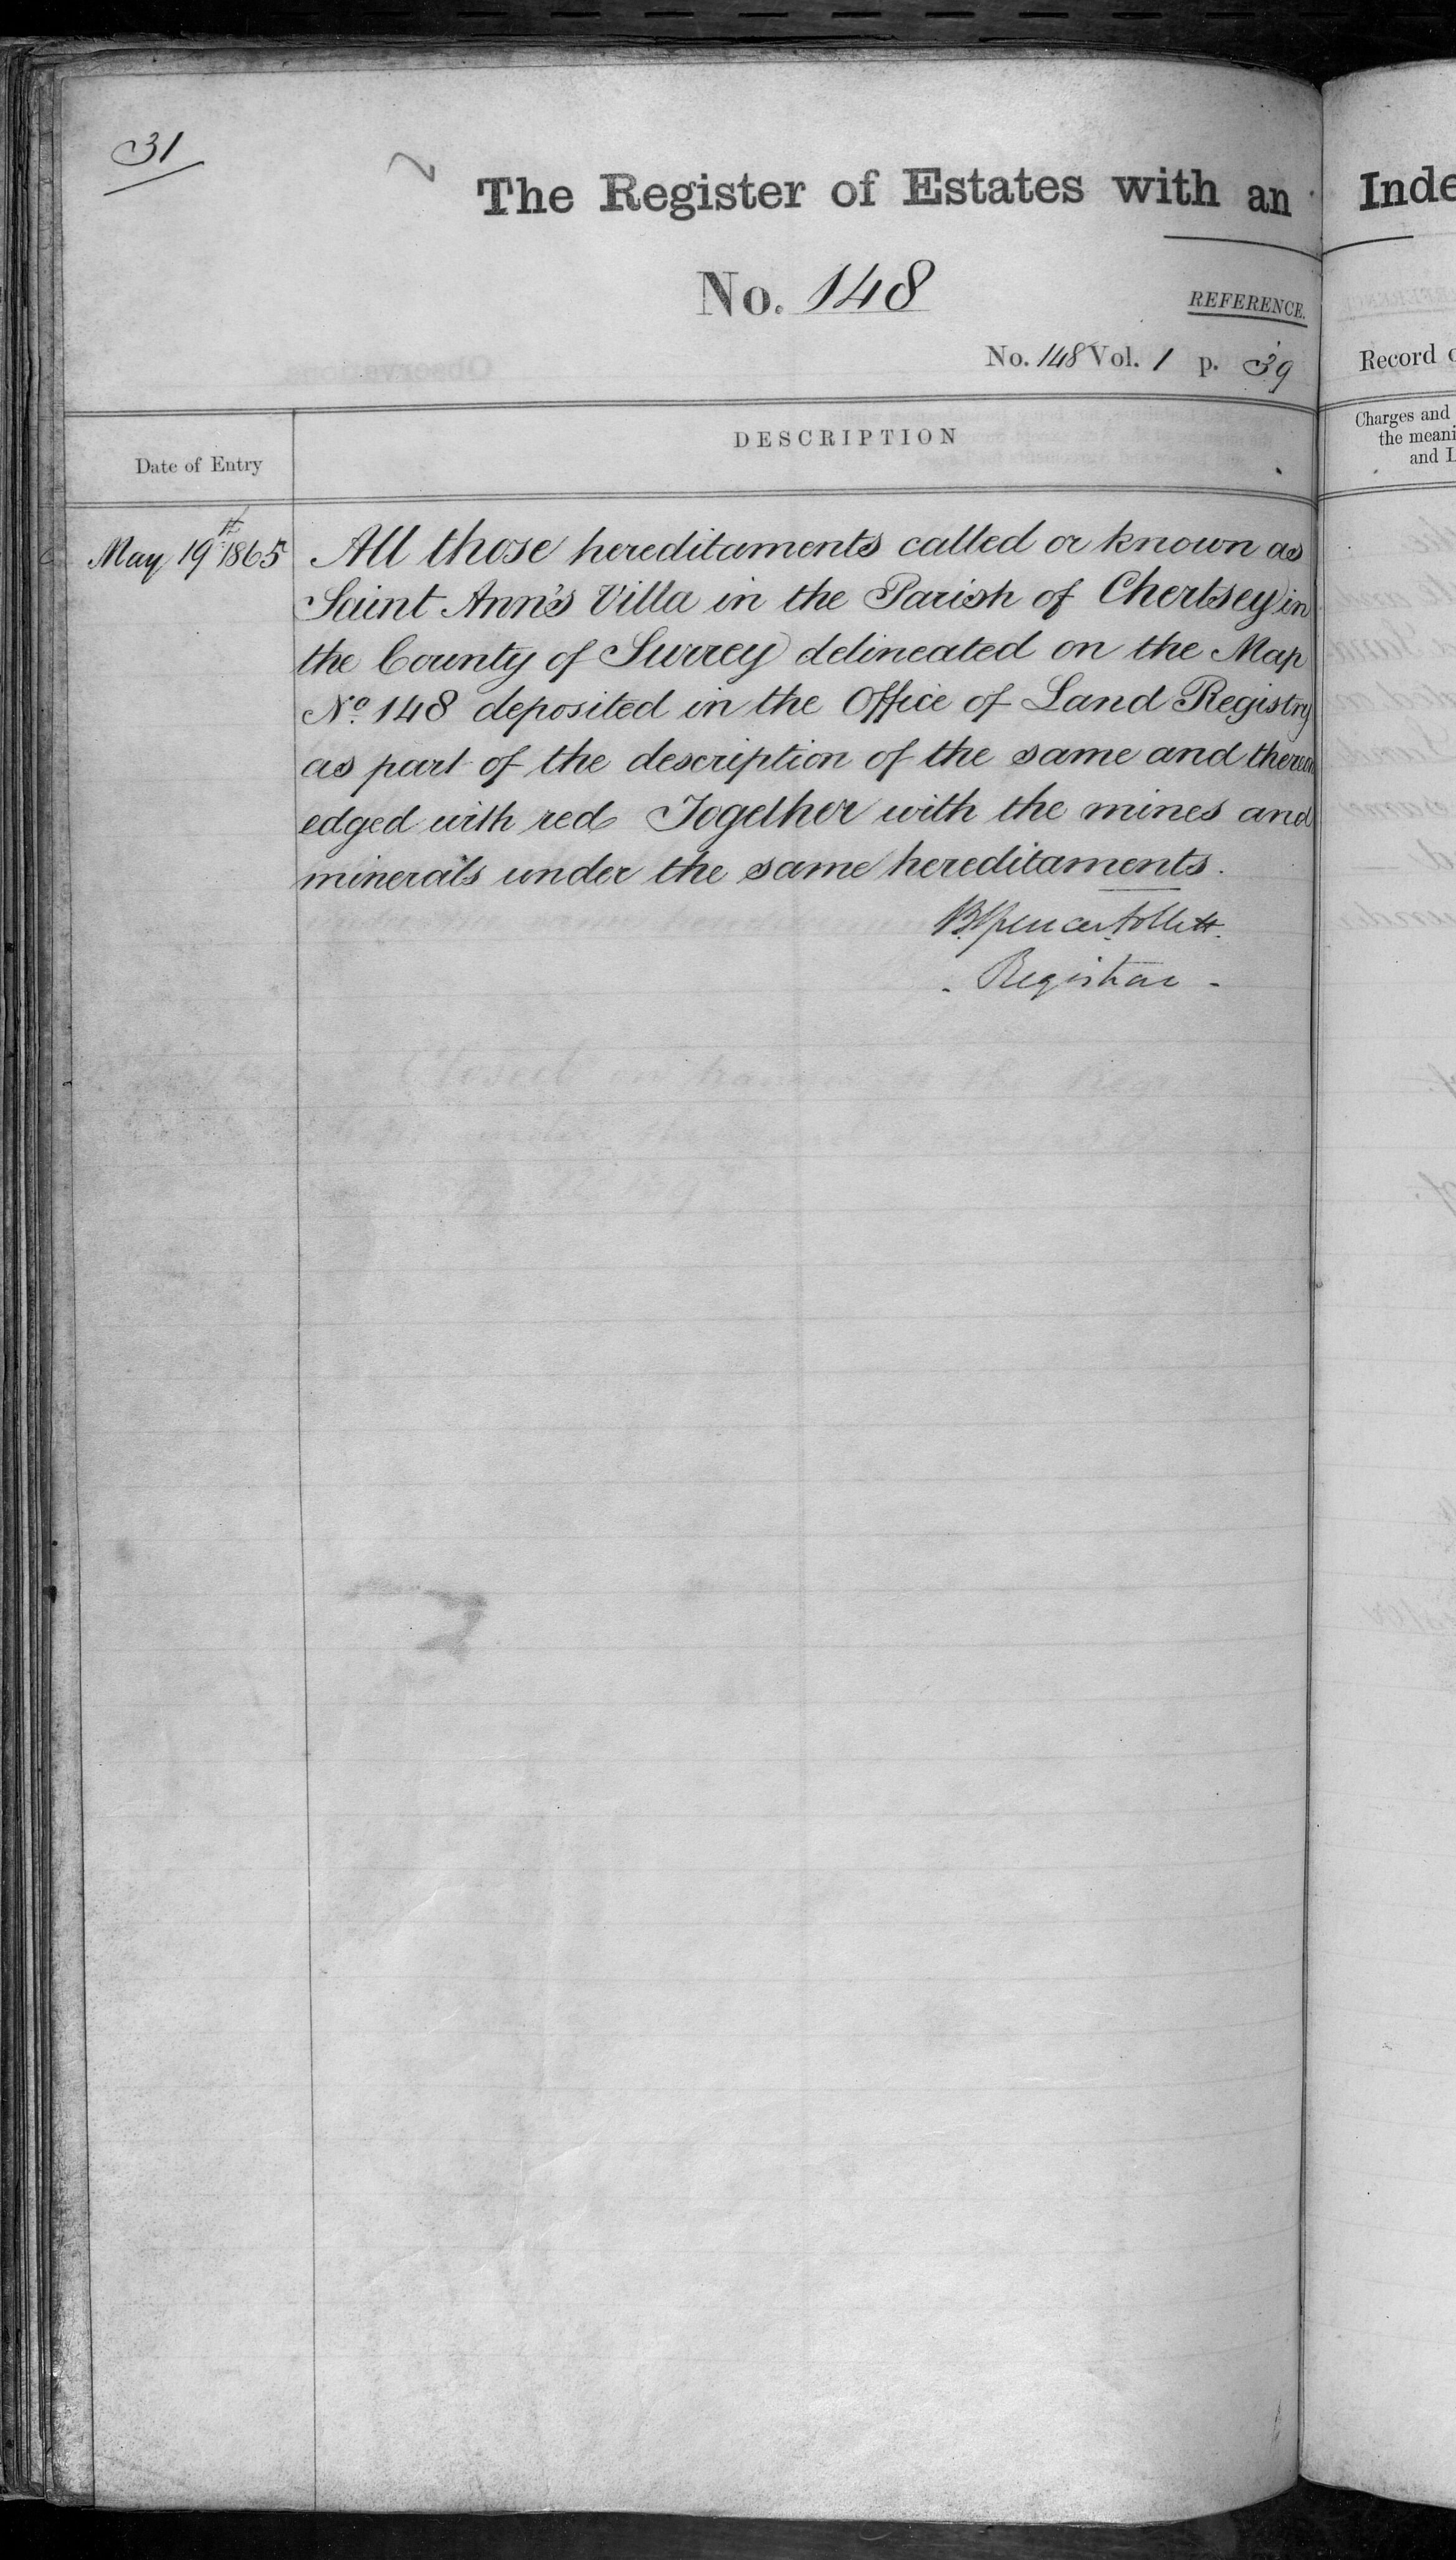 31
The Register of Estates with an Inde
No. 148
REFERENCE.
No. 148 Vol. 1 p. 39
Record o
Date of Entry
DESCRIPTION
Charges and
the meani
and L
May 19th 1865
All those hereditaments called or known as
Saint Ann's Villa in the Parish of Chertsey in
the County of Surrey delineated on the Map
No. 148 deposited in the Office of Land Registry
as part of the description of the same and thereon
edged with red Together with the mines and
minerals under the same hereditaments.
B Spencer Follett.
Registrar